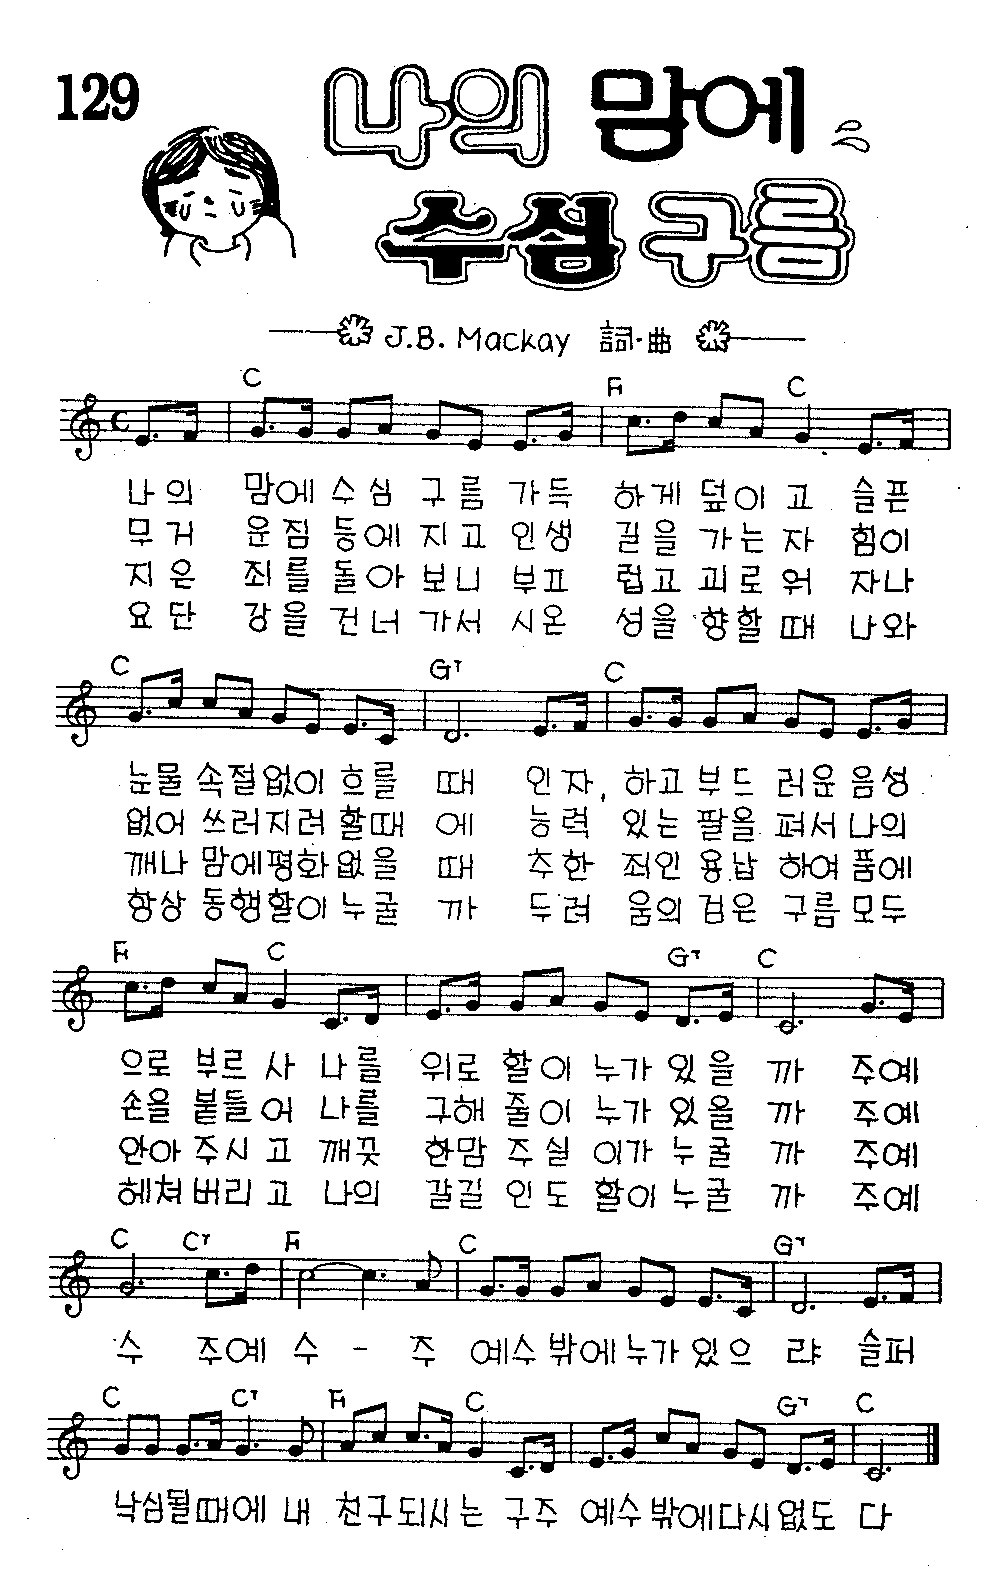 129
나의 맘에
수심 구름
J.B. Mackay 詞·曲
C F C
나의 맘에 수심 구름 가득 하게 덮이고 슬픈
무거 운짐 등에 지고 인생 길을 가는 자 힘이
지은 죄를 돌아 보니 부끄 럽고 괴로워 자나
요단 강을 건너 가서 시온 성을 향할 때 나와
C G7 C
눈물 속절없이 흐를 때 인자, 하고 부드 러운 음성
없어 쓰러지려 할때 에 능력 있는 팔을 펴서 나의
깨나 맘에평화없을 때 추한 죄인 용납 하여 품에
항상 동행할이 누굴 까 두려 움의 검은 구름 모두
F C G7 C
으로 부르사 나를 위로 할이 누가 있을 까 주예
손을 붙들어 나를 구해 줄이 누가 있을 까 주예
안아 주시고 깨끗 한맘 주실 이가 누굴 까 주예
헤쳐 버리고 나의 갈길 인도 할이 누굴 까 주예
C C7 F C G7
수 주예 수 - 주 예수 밖에 누가 있으 랴 슬퍼
C C7 F C G7 C
낙심될때에 내 친구되시는 구주 예수 밖에다시없도 다